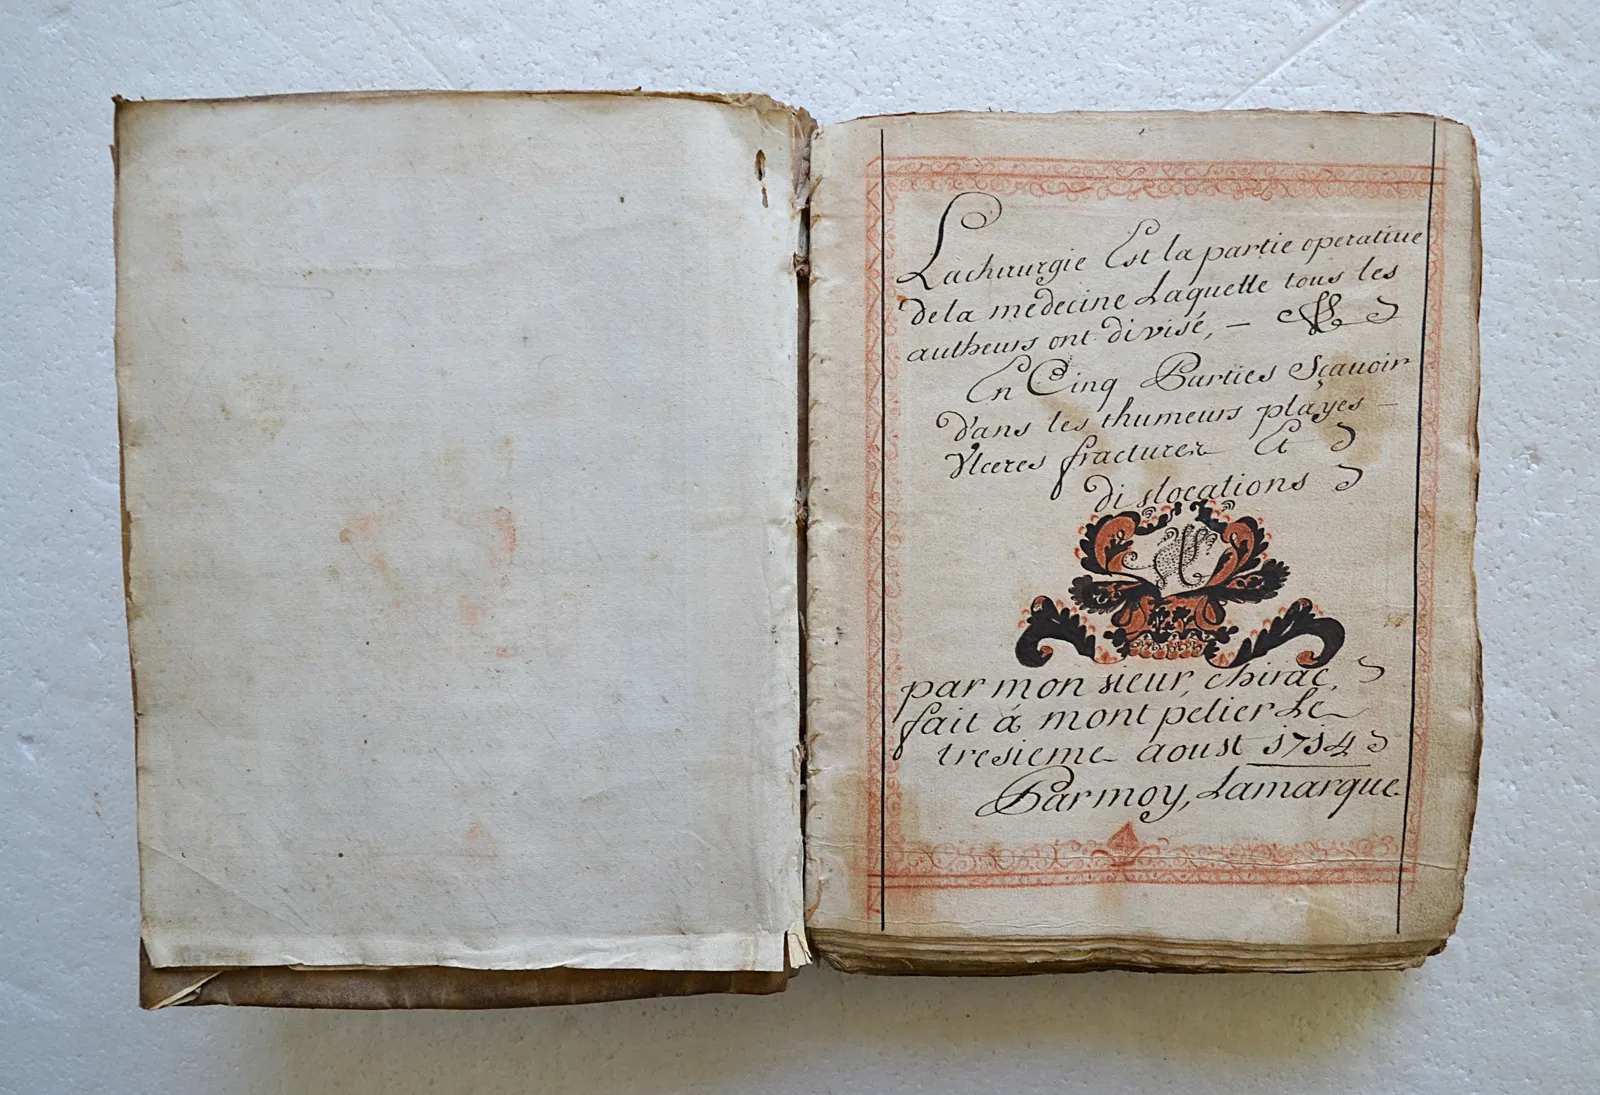 Lachirurgie Est la partie operatiue
dela medecine Laquelle tous les
autheurs ont divisé, —
En Cinq Parties Sçauoir
dans les thumeurs playes —
Vlceres fractures Et
dislocations
par monsieur, chirac,
fait á mont pelier Le
tresieme aoust 1714
Parmoy, Lamarque